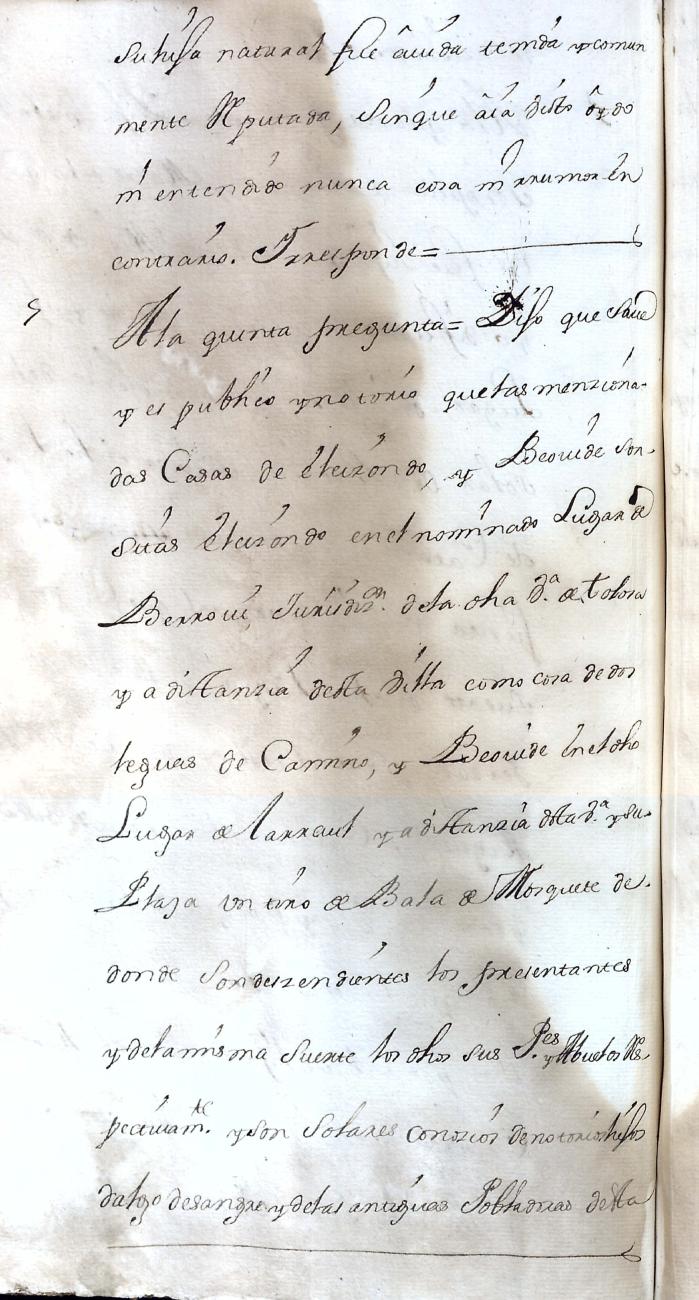 su hija natural fue auida tenida y comun
mente Reputada, sin que aia disto oydo
ni entendido nunca cosa ni rrumor en
contrario. Yrresponde=
5 A la quinta pregunta= Dijo que saue
y es publico y notorio que las menziona-
das Casas de Eleizondo, y Beouide son
sitas Eleizondo en el nominado Lugar de
Berroui, Jurisdizon. de la dha Va. de Tolosa
y a distanzia desta Villa como cosa de dos
leguas de Camino, y Beouide en el dho
Lugar de Larraul y a distanzia desta Va. y su
Plaza un tiro de Bala de Mosquete de
donde son deszendientes los presentantes
y de la misma suerte los dhos sus Pes. y Abuelos Res-
pectiuamte. y son Solares conozidos de notorios hijos
dalgo de sangre y de las antiguas Pobladoras desta